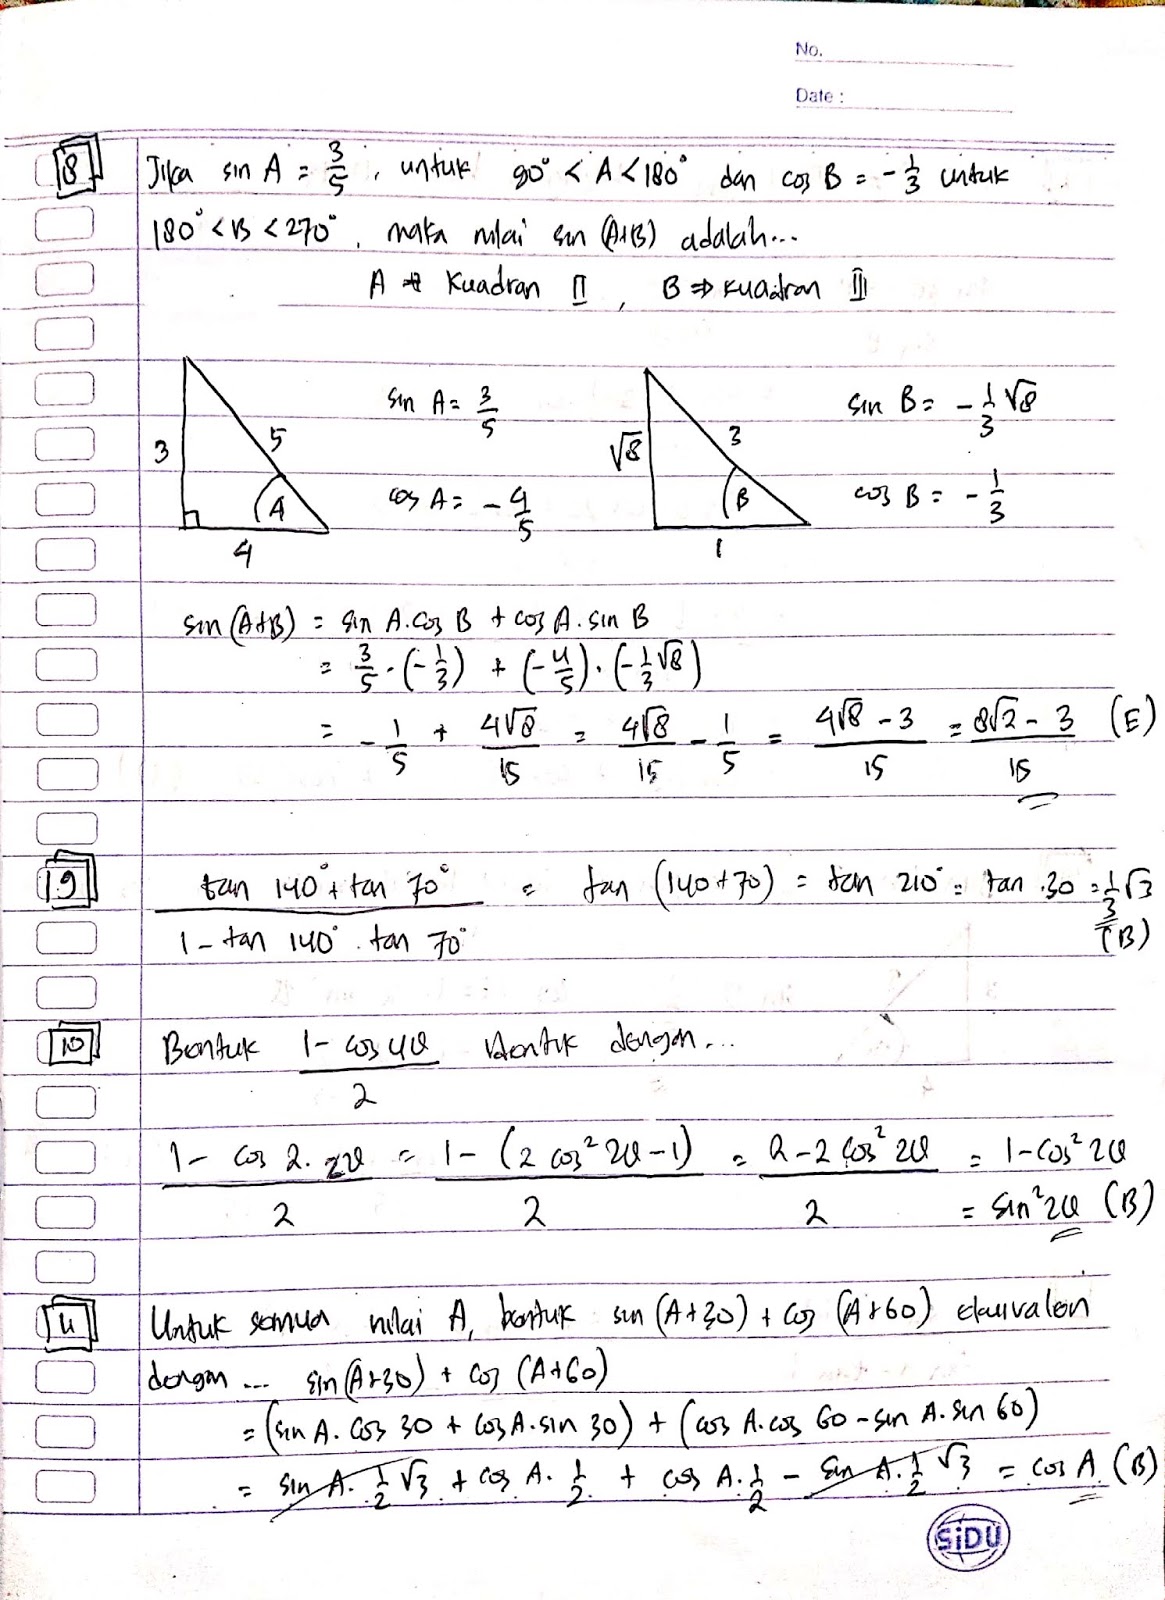 No.
Date :
8 Jika sin A = 3/5, untuk 90° < A < 180° dan cos B = -1/3 untuk
180° < B < 270°, maka nilai sin (A+B) adalah...
A ⇒ Kuadran II, B ⇒ Kuadran III
3 5 A 4
sin A = 3/5
cos A = -4/5
√8 3 B 1
sin B = -1/3 √8
cos B = -1/3
sin (A+B) = sin A. cos B + cos A. sin B
= 3/5 . (-1/3) + (-4/5) . (-1/3 √8)
= -1/5 + 4√8/15 = 4√8/15 - 1/5 = (4√8 - 3)/15 = (8√2 - 3)/15 (E)
9 (tan 140° + tan 70°)/(1 - tan 140° . tan 70°) = tan (140+70) = tan 210° = tan 30 = 1/3 √3
(B)
10 Bentuk (1 - cos 4θ)/2 identik dengan...
(1 - cos 2. 2θ)/2 = (1 - (2 cos² 2θ - 1))/2 = (2 - 2 cos² 2θ)/2 = 1 - cos² 2θ
= sin² 2θ (B)
11 Untuk semua nilai A, bentuk sin (A+30) + cos (A+60) ekuivalen
dengan ... sin (A+30) + cos (A+60)
= (sin A. cos 30 + cos A. sin 30) + (cos A. cos 60 - sin A. sin 60)
= sin A. 1/2 √3 + cos A. 1/2 + cos A. 1/2 - sin A. 1/2 √3 = cos A (B)
SiDU